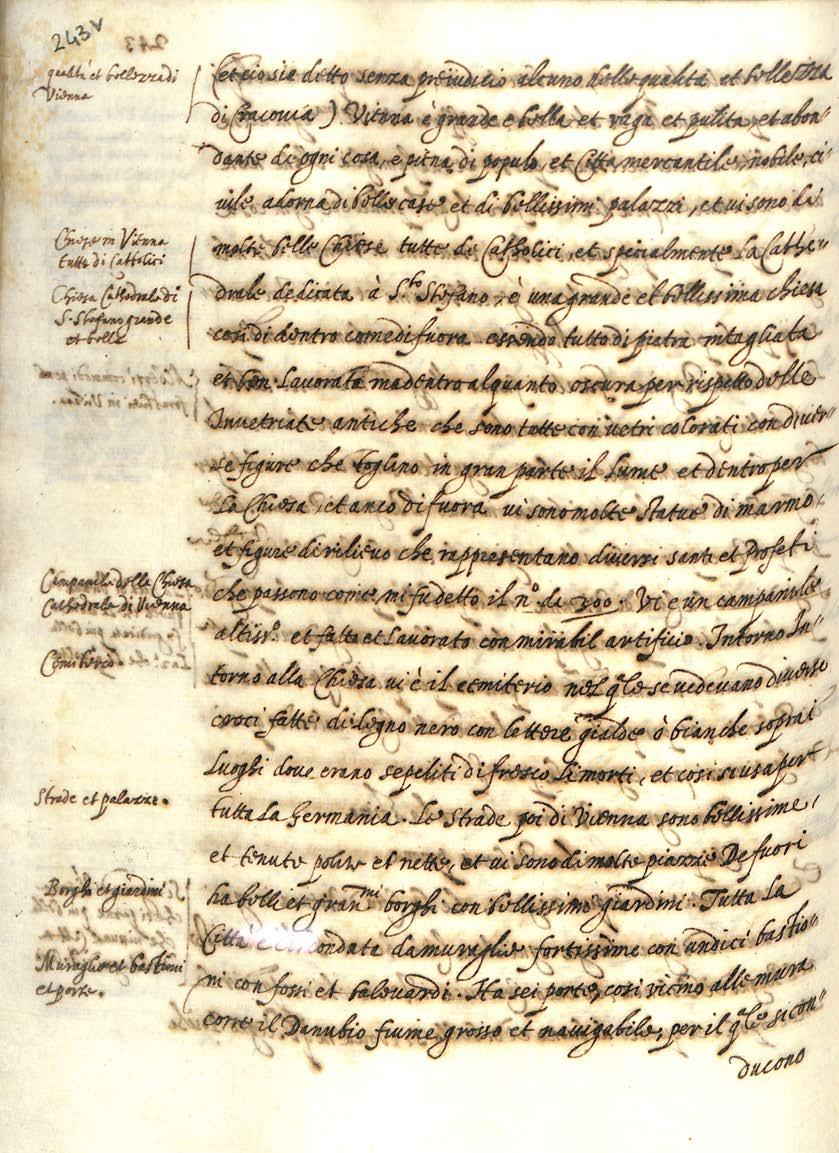 243v
243
qualità et bellezze di
Vienna
(et cio sia detto senza preiudicio alcuno delle qualità et bellezza
di Cracovia) Vienna è grande e bella et vaga et pulita, et abon-
dante de ogni cosa, e piena di populo, et Citta mercantile, nobile, ci-
vile adorna di belle case et di bellissimi palazzi, et vi sono di
Chiese in Vienna
tutte di Cattolici
molte belle Chiese tutte de Catholici, et specialmente La Cathe-
Chiesa Cathedrale di
S. Stefano grande
et bella
drale dedicata à S.to Stefano, è una grande et bellissima chiesa
cosi di dentro come di fuora essendo tutto di pietra intagliata
et ben Lavorata ma dentro alquanto oscura per rispetto delle
Invetriate antiche che sono tutte con vetri colorati con diver-
se figure che togliano in gran parte il Lume et dentro per
La Chiesa, et anco di fuora vi sono molte statue di marmo,
et figure di rilievo che rappresentano diversi santi et Profeti
Campanile della Chiesa
Cathedrale di Vienna
che passono come mi fu detto il n.o de 300. Vi è un campanile
altiss.o et fatto et Lavorato con mirabil artificio. Intorno In-
Cemiterio
torno alla Chiesa vi è il cemiterio nel q.le se vedevano diverse
croci fatte di legno nero con lettere gialde ò bianche sopra i
Luoghi dove erano sepeliti di fresco li morti, et cosi se usa per
Strade et palazze.
tutta La Germania. Le strade poi di Vienna sono bellissime,
et tenute polite et nette, et vi sono di molte piazze De fuori
Borghi et giardini
ha belli et gran.mi borghi con bellissimo giardini. Tutta La
Città è circondata da muraglie fortissime con undici bastio-
Muraglie et bastioni
et porte.
ni con fossi et balevardi. Ha sei porte, cosi vicino alle mura
corre il Danubio fiume grosso et navigabile, per il q.le si con-
ducono